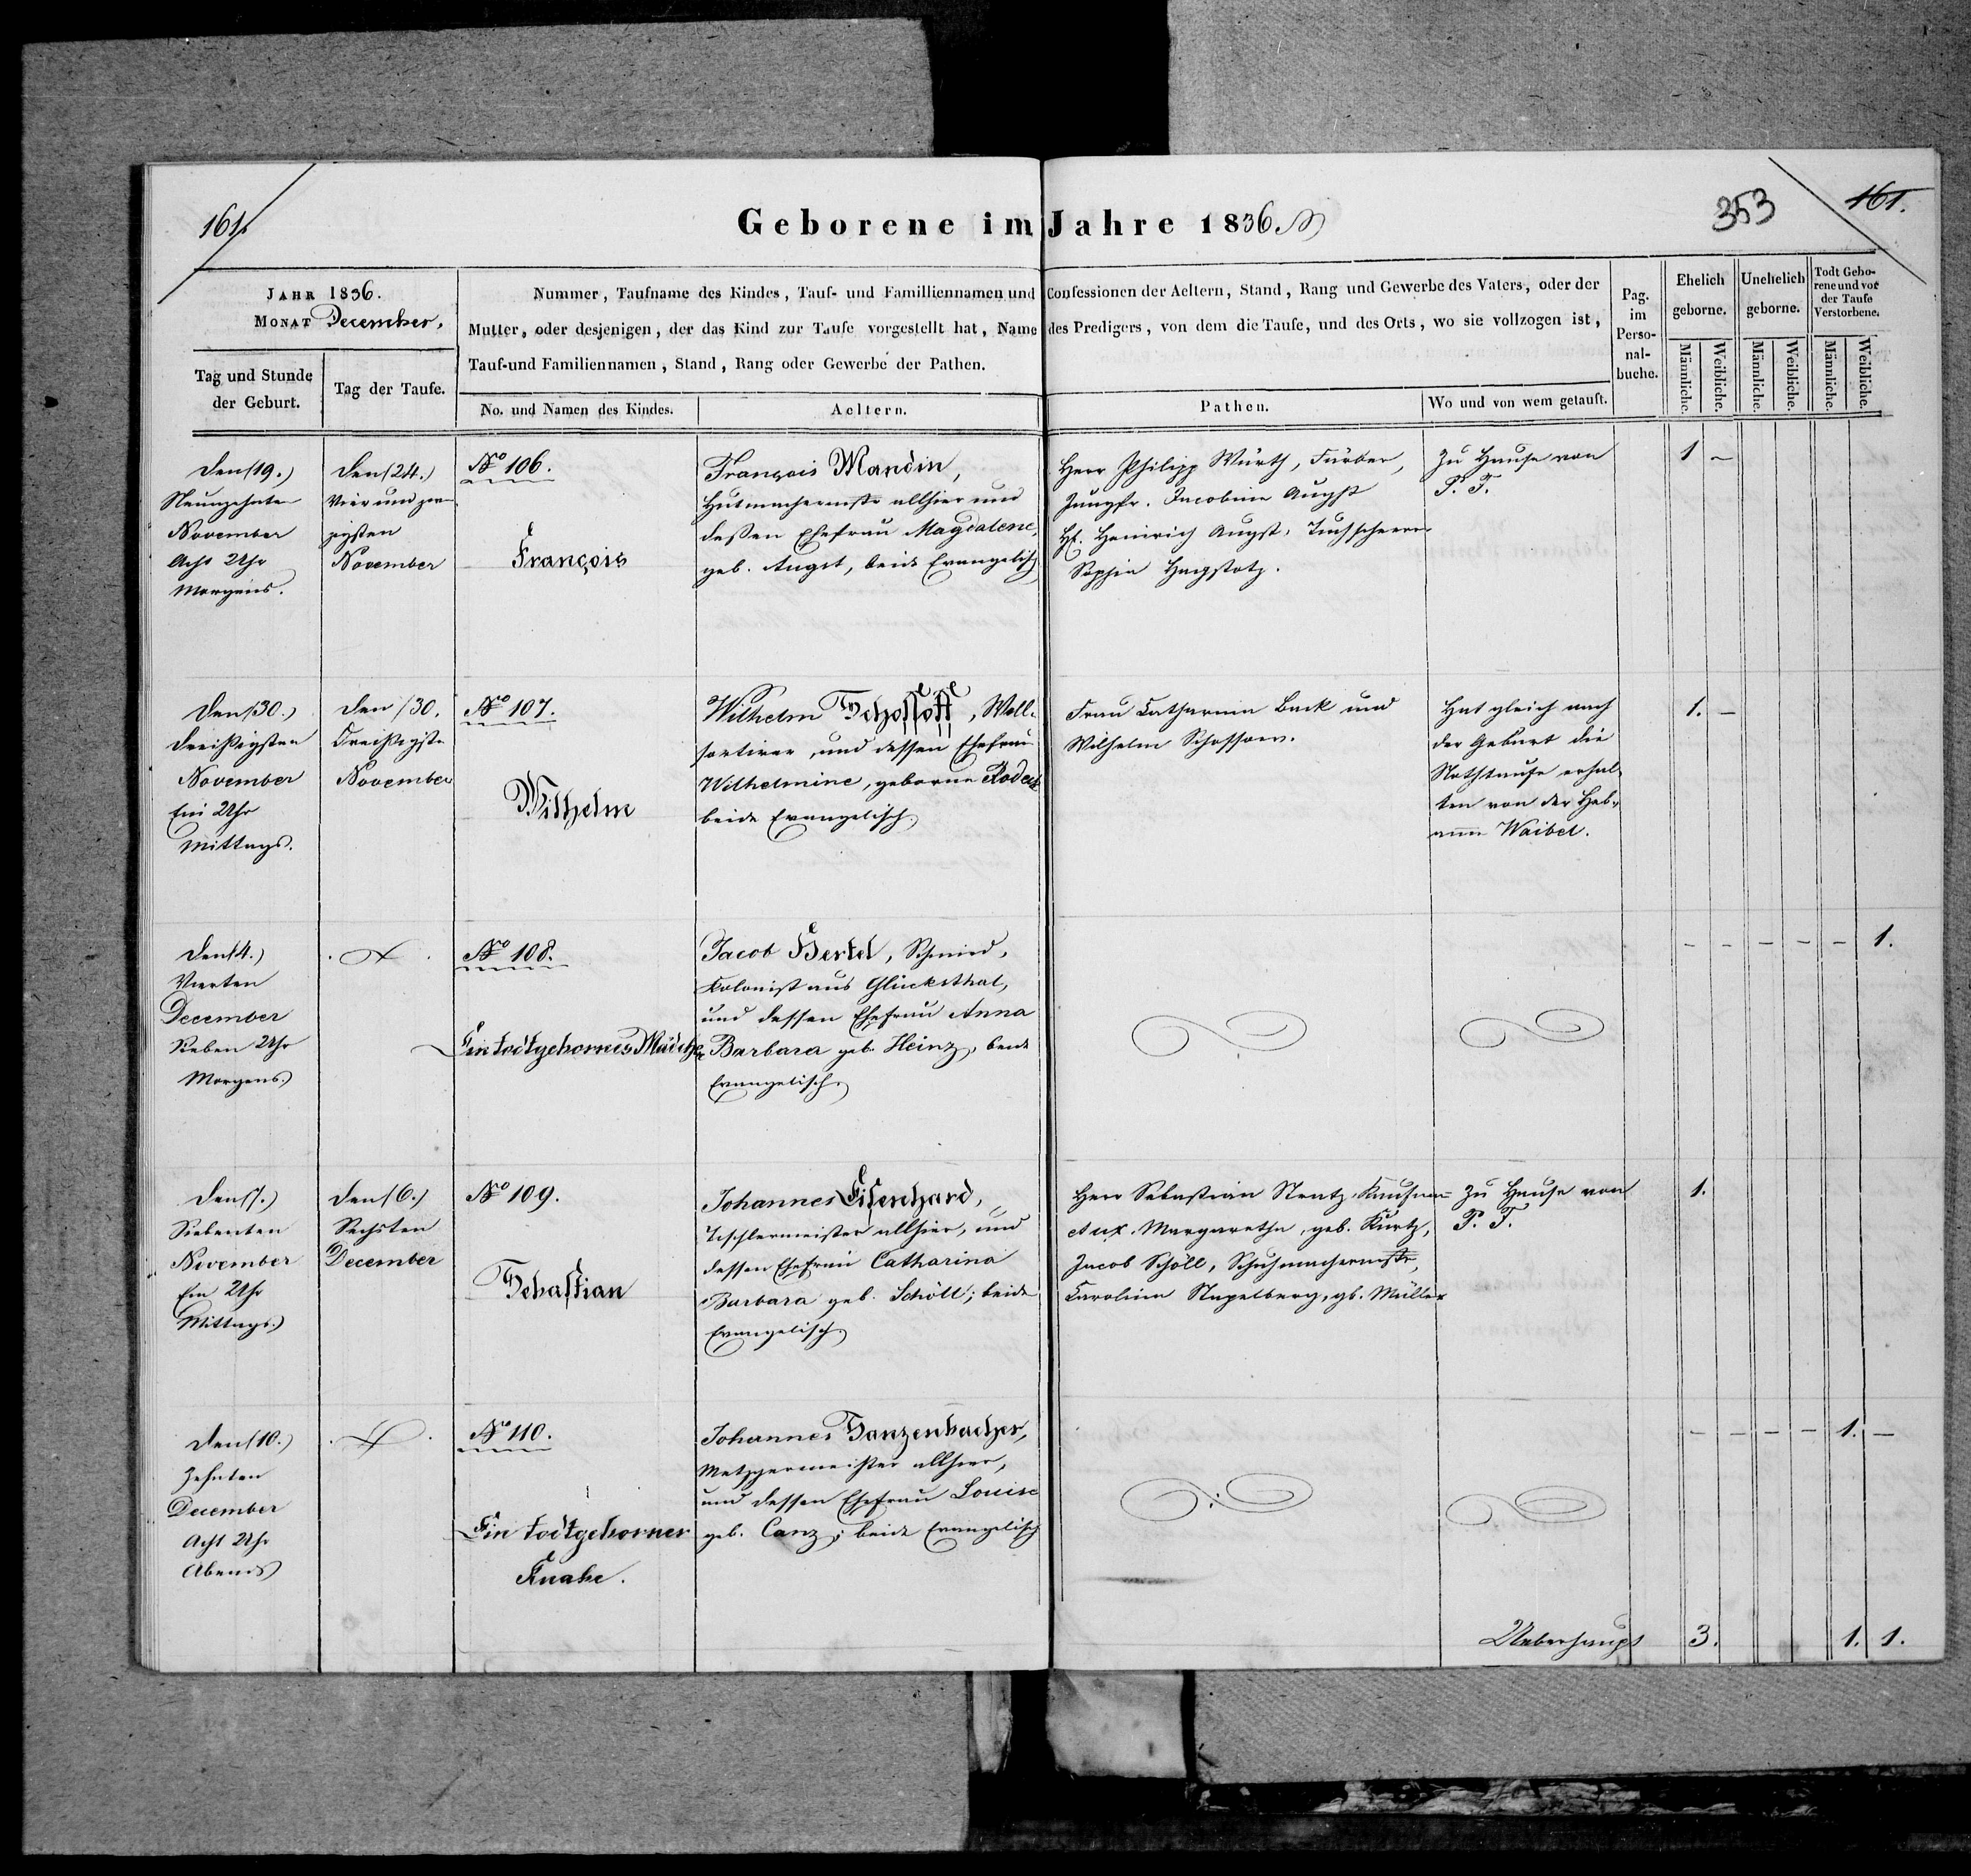 161.
Geborene im Jahre 1836.
353
161.
JAHR 1836.
MONAT December.
Tag und Stunde
der Geburt.
Tag der Taufe.
Nummer, Taufname des Kindes, Tauf- und Familliennamen und Confessionen der Aeltern, Stand, Rang und Gewerbe des Vaters, oder der
Mutter, oder desjenigen, der das Kind zur Taufe vorgestellt hat, Name des Predigers, von dem die Taufe, und des Orts, wo sie vollzogen ist,
Tauf-und Familiennamen, Stand, Rang oder Gewerbe der Pathen.
No. und Namen des Kindes.
Aeltern.
Pathen.
Wo und von wem getauft.
Pag.
im
Perso-
nal-
buche.
Ehelich
geborne.
Unehelich
geborne.
Todt Gebo-
rene und vor
der Taufe
Verstorbene.
Männliche.
Weibliche.
Männliche.
Weibliche.
Männliche.
Weibliche.
Den (19.)
Neunzehnten
November
Acht Uhr
Morgens.
Den (24.)
Vier und zwan
zigsten
November
No 106.
François
François Mandin,
Hutmachermstr allhier und
deßen Ehefrau Magdalene,
geb. Augst, beide Evangelisch
Herr Philipp Würth, Färber,
Jungfr. Jacobine Augst
Hr. Heinrich Augst, Tuchscheerer
Sophia
Zu Hause von
P. F.
1 -
Den (30.)
Dreißigsten
November
Ein Uhr
Mittags.
Den (30.
Dreißigsten
November
No 107.
Wilhelm
Wilhelm Schossow, Woll-
sortirer, und dessen Ehefrau
Wilhelmine, geborne
beide Evangelisch.
Frau Catharina Back und
Wilhelm Schossow.
Hat gleich nach
der Geburt die
Nothtaufe erhal-
ten von der Heb-
amme Waibel.
1. -
Den (4.)
Vierten
December
Sieben Uhr
Morgens.
No 108.
Ein todtgebornes Mädchen
Jacob Hertel, Schmied,
Kolonist aus Glücksthal,
und dessen Ehefrau Anna
Barbara geb. Heinz, beide
Evangelisch.
- - - - - 1.
Den (7.)
Siebenten
November
Ein Uhr
Mittags.
Den (6.)
Sechsten
December
No 109.
Sebastian
Johannes Eisenhard,
Tischlermeister allhier, und
dessen Ehefrau Catharina
Barbara geb. Schöll; beide
Evangelisch.
Herr Sebastian Kaufman
Aux. Margaretha, geb. Kurtz,
Jacob Schöll, Schuhmachermstr,
Carolina Stapelberg, gb. Müller
Zu Hause von
P. F.
1.
Den (10.)
Zehnten
December
Acht Uhr
Abends
No 110.
Ein todtgeborner
Knabe.
Johannes Sanzenbacher,
Metzgermeister allhier,
und dessen Ehefrau Louise
geb. Canz; beide Evangelisch
- - - - 1. -
Ueberhaupt 3. 1. 1.